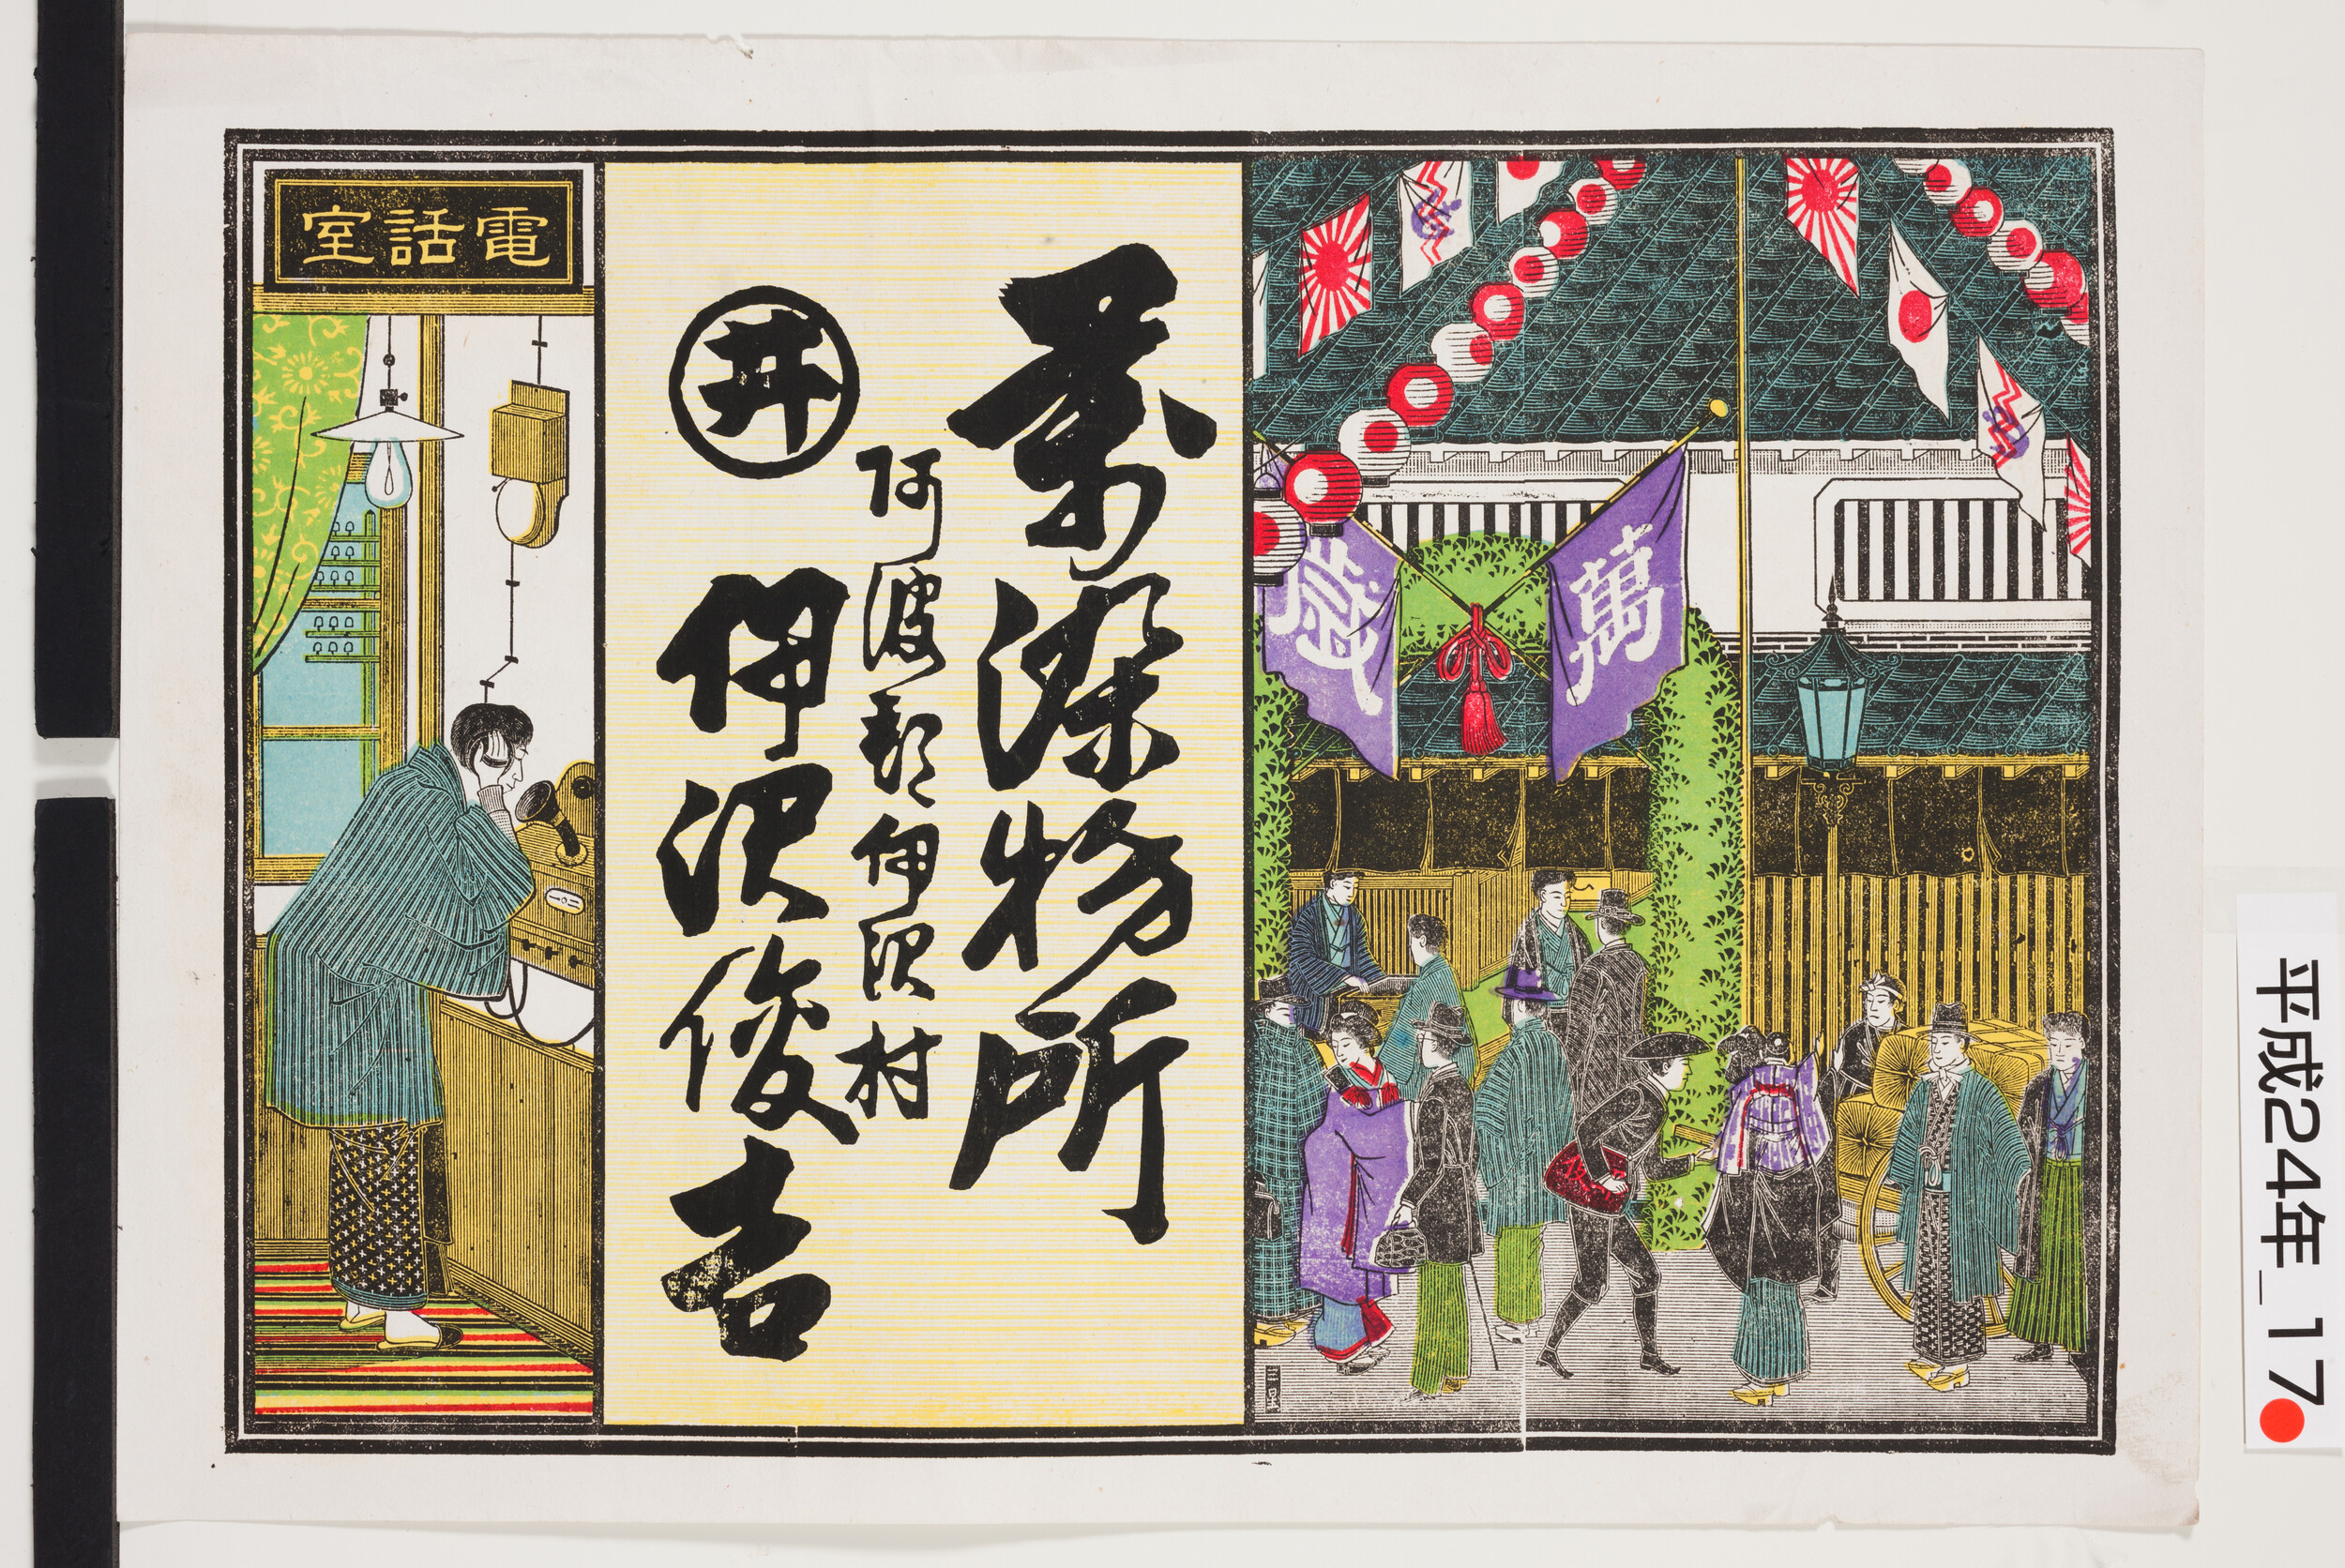 萬
歳
萬染物所
阿波郡伊沢村
井
伊沢俊吉
電話室
平成24年_17